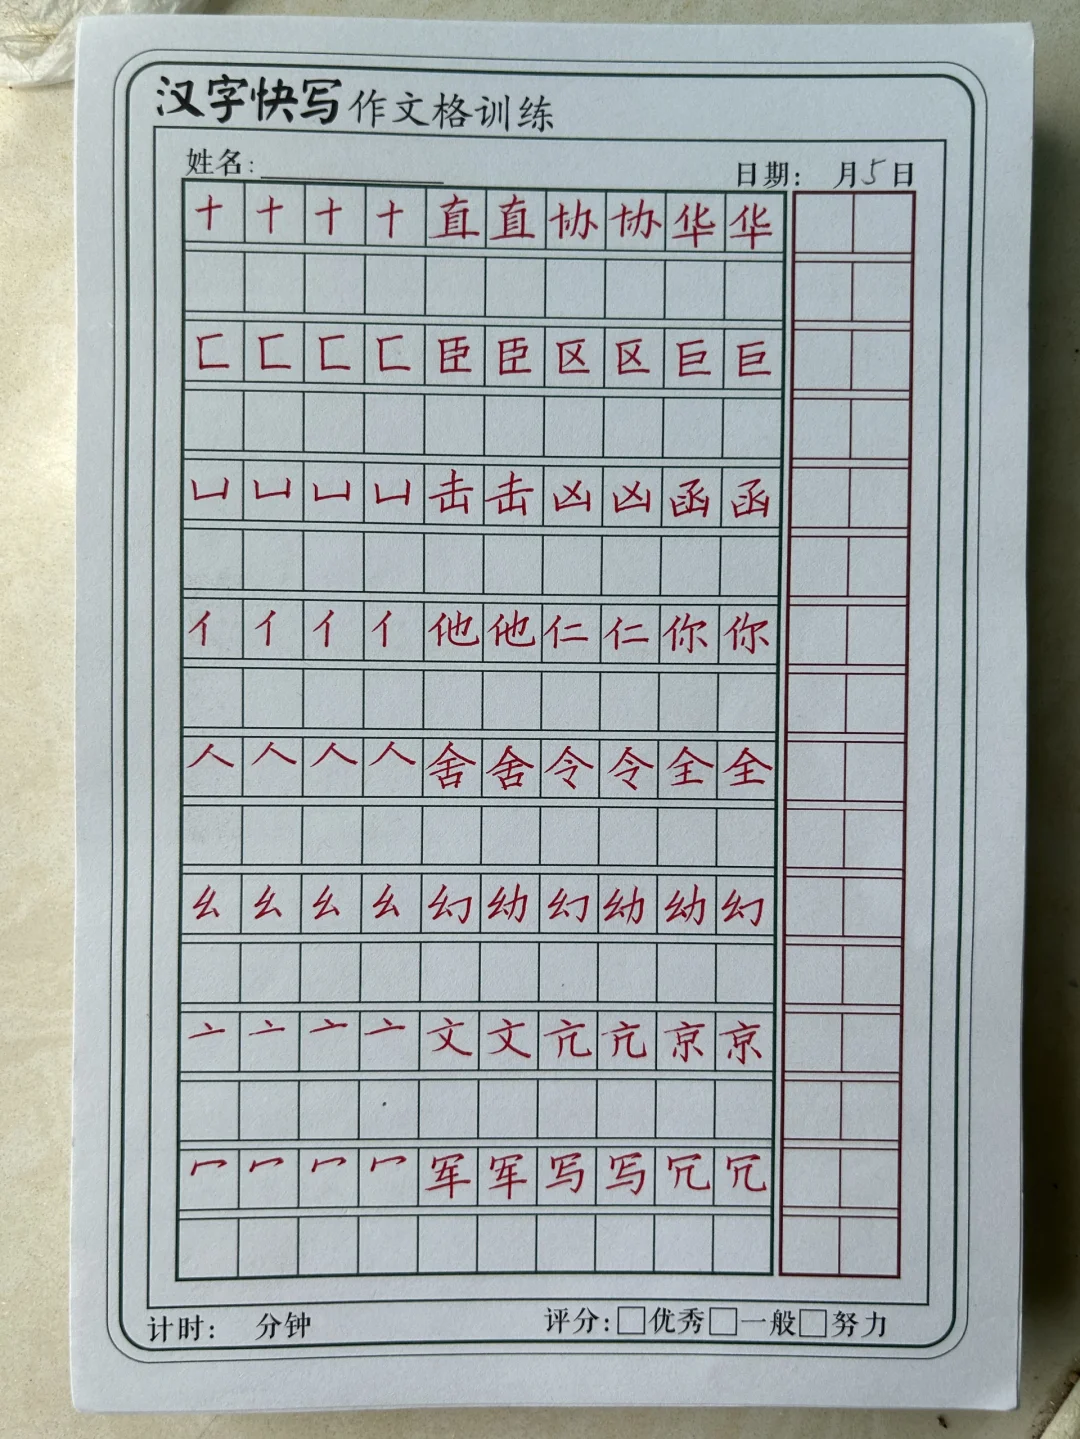 汉字快写作文格训练
姓名: 日期: 月5日
十十十十直直协协华华
匚匚匚匚臣臣区区巨巨
凵凵凵凵击击凶凶函函
亻亻亻亻他他仁仁你你
人人人人舍舍令令全全
幺幺幺幺幻幼幻幼幼幻
亠亠亠亠文文亢亢京京
冖冖冖冖军军写写冗冗
计时: 分钟 评分:□优秀□一般□努力